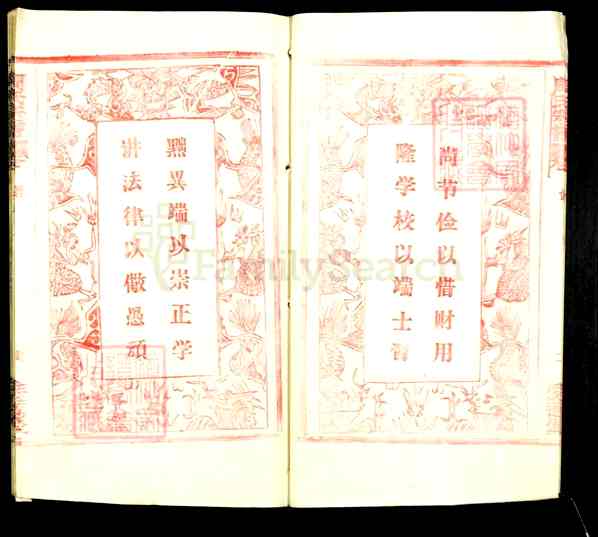 尚节俭以惜财用
隆学校以端士習
黜異端以崇正学
讲法律以儆愚頑
FamilySearch